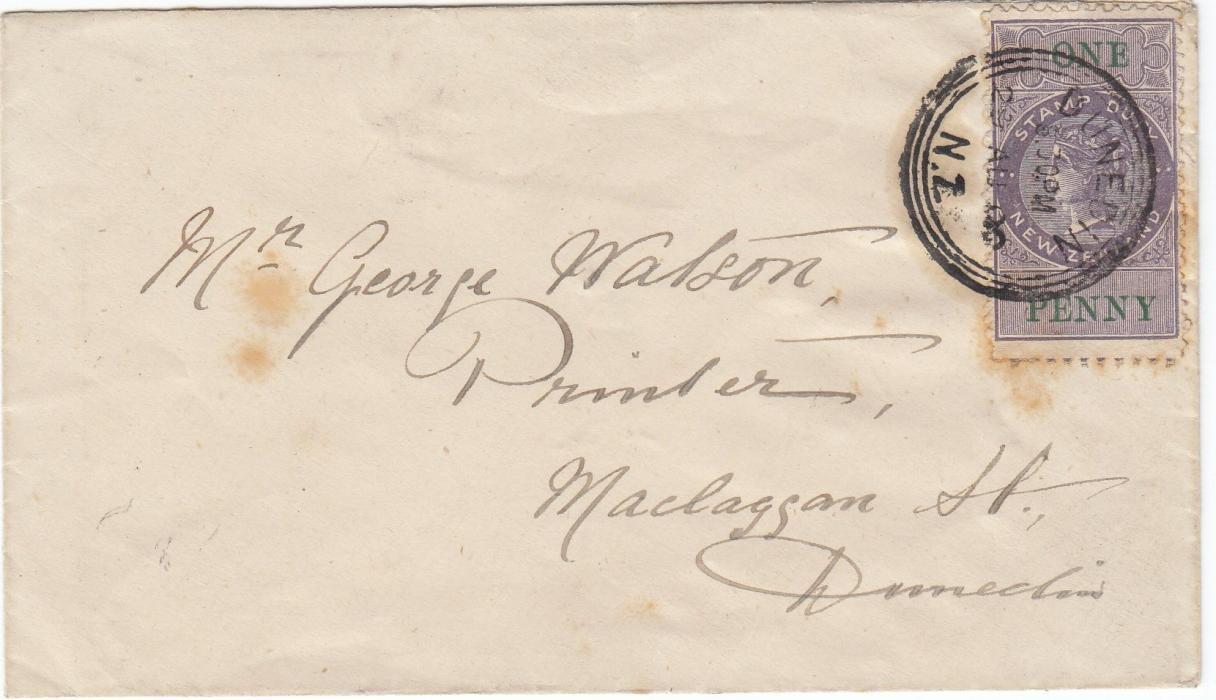 ONE
STAMP DUTY
NEW ZEALAND
PENNY
DUNEDIN
N.Z
Mr George Watson,
Printer,
Maclaggan St.,
Dunedin